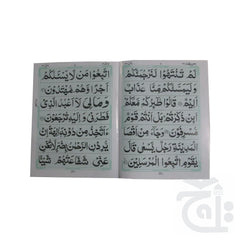 لَمْ تَنْتَهُوْا لَنَرْجُمَنَّكُمْ
وَلَيَمَسَّنَّكُمْ مِّنَّا عَذَابٌ
اَلِيْمٌ قَالُوْا طَآئِرُكُمْ مَّعَكُمْ
اَئِنْ ذُكِّرْتُمْ بَلْ اَنْتُمْ قَوْمٌ
مُّسْرِفُوْنَ وَجَآءَ مِنْ اَقْصَا
الْمَدِيْنَةِ رَجُلٌ يَّسْعٰى قَالَ
يٰقَوْمِ اتَّبِعُوا الْمُرْسَلِيْنَ
اتَّبِعُوْا مَنْ لَّا يَسْـَٔلُكُمْ
اَجْرًا وَّهُمْ مُّهْتَدُوْنَ
وَمَالِيَ لَآ اَعْبُدُ الَّذِيْ
فَطَرَنِيْ وَاِلَيْهِ تُرْجَعُوْنَ
ءَاَتَّخِذُ مِنْ دُوْنِهٖٓ اٰلِهَةً اِنْ
يُّرِدْنِ الرَّحْمٰنُ بِضُرٍّ لَّا تُغْنِ
عَنِّيْ شَفَاعَتُهُمْ شَيْـًٔا